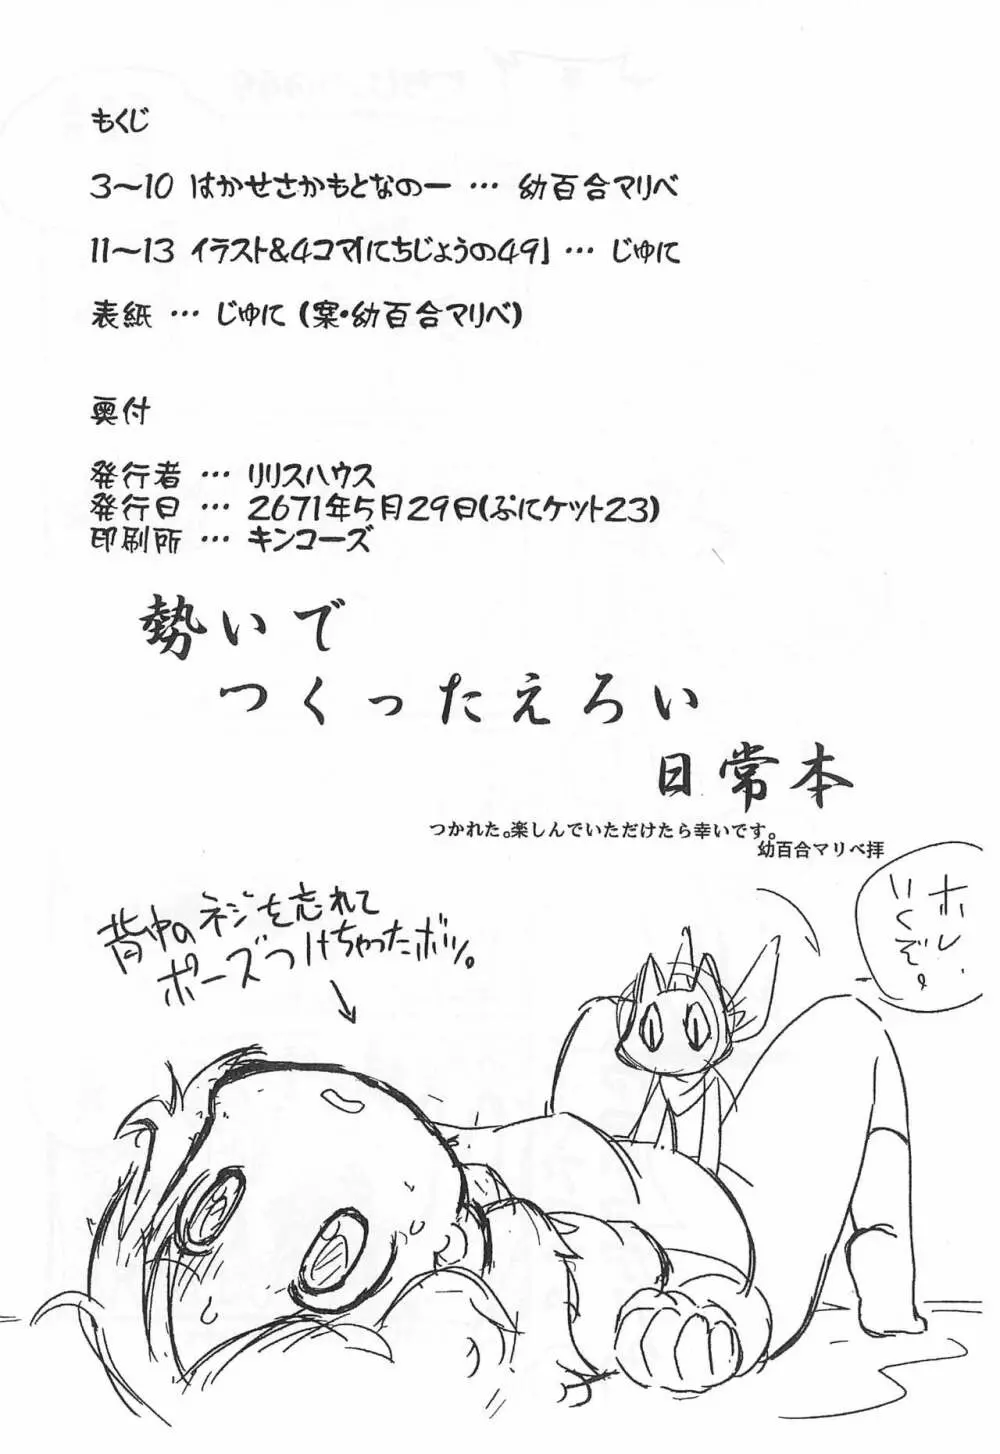 もくじ
3〜10 はかせさかもとなのー … 幼百合マリベ
11〜13 イラスト&4コマ「にちじょうの49」 … じゅに
表紙 … じゅに (案・幼百合マリベ)
奥付
発行者 … リリスハウス
発行日 … 2671年5月29日(ぷにケット23)
印刷所 … キンコーズ
勢いで
つくったえろい
日常本
つかれた。楽しんでいただけたら幸いです。
幼百合マリベ拝
ホレ、
いくぞ。
背中のネジを忘れて
ポーズつけちゃったボツ。